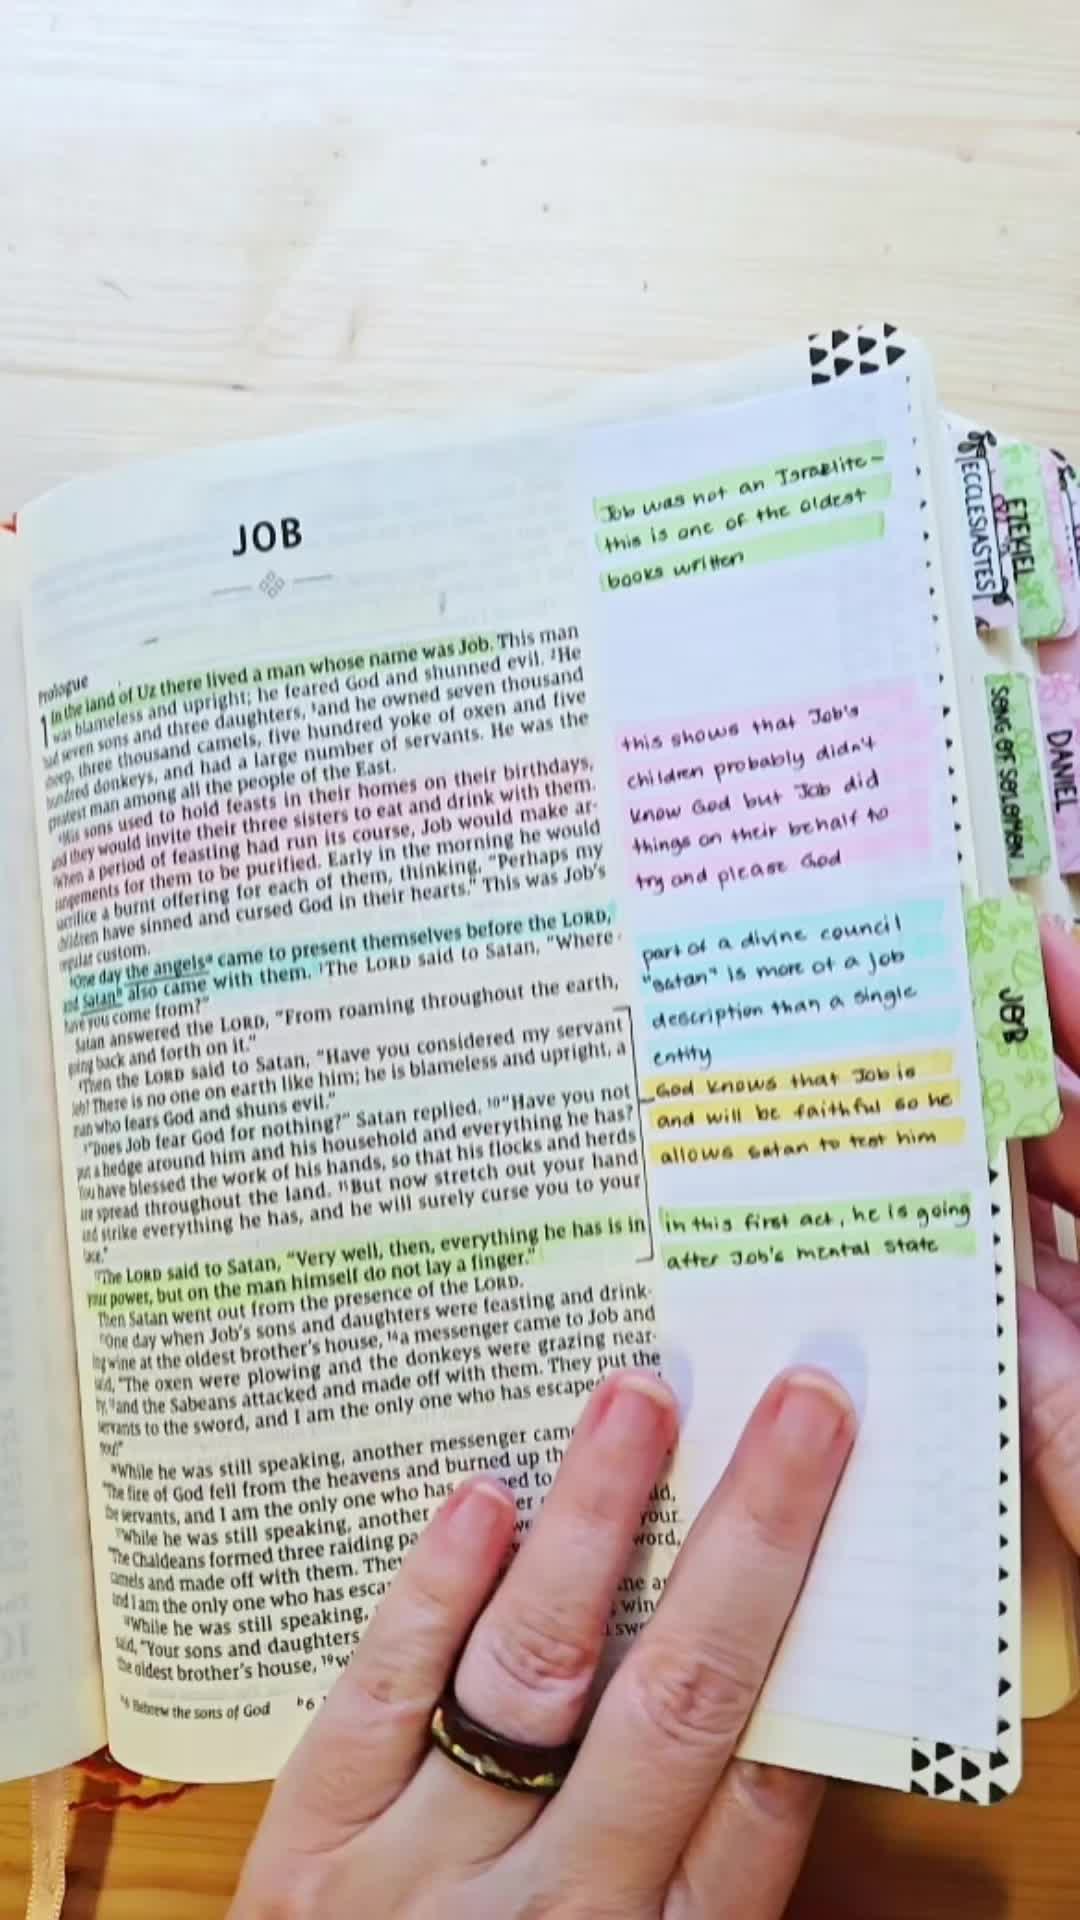 JOB
Prologue
1 In the land of Uz there lived a man whose name was Job. This man
was blameless and upright; he feared God and shunned evil. ²He
had seven sons and three daughters, ³and he owned seven thousand
sheep, three thousand camels, five hundred yoke of oxen and five
hundred donkeys, and had a large number of servants. He was the
greatest man among all the people of the East.
⁴His sons used to hold feasts in their homes on their birthdays,
and they would invite their three sisters to eat and drink with them.
⁵When a period of feasting had run its course, Job would make ar-
rangements for them to be purified. Early in the morning he would
sacrifice a burnt offering for each of them, thinking, “Perhaps my
children have sinned and cursed God in their hearts.” This was Job’s
regular custom.
⁶One day the angelsᵃ came to present themselves before the LORD,
and Satanᵇ also came with them. ⁷The LORD said to Satan, “Where
have you come from?”
Satan answered the LORD, “From roaming throughout the earth,
going back and forth on it.”
⁸Then the LORD said to Satan, “Have you considered my servant
Job? There is no one on earth like him; he is blameless and upright, a
man who fears God and shuns evil.”
⁹“Does Job fear God for nothing?” Satan replied. ¹⁰“Have you not
put a hedge around him and his household and everything he has?
You have blessed the work of his hands, so that his flocks and herds
are spread throughout the land. ¹¹But now stretch out your hand
and strike everything he has, and he will surely curse you to your
face.”
¹²The LORD said to Satan, “Very well, then, everything he has is in
your power, but on the man himself do not lay a finger.”
Then Satan went out from the presence of the LORD.
¹³One day when Job’s sons and daughters were feasting and drink-
ing wine at the oldest brother’s house, ¹⁴a messenger came to Job and
said, “The oxen were plowing and the donkeys were grazing near-
by, ¹⁵and the Sabeans attacked and made off with them. They put the
servants to the sword, and I am the only one who has escaped
you!”
¹⁶While he was still speaking, another messenger came
“The fire of God fell from the heavens and burned up the
the servants, and I am the only one who has
¹⁷While he was still speaking, another
“The Chaldeans formed three raiding your
camels and made off with them. They word,
and I am the only one who has
¹⁸While he was still speaking,
said, “Your sons and daughters
the oldest brother’s house, ¹⁹
ᵃ6 Hebrew the sons of God ᵇ6
Job was not an Israelite –
this is one of the oldest
books written
this shows that Job's
children probably didn't
know God but Job did
things on their behalf to
try and please God
part of a divine council
"satan" is more of a job
description than a single
entity
God knows that Job is
and will be faithful so he
allows satan to test him
in this first act, he is going
after Job's mental state
ECCLESIASTES
EZEKIEL
SONG OF SOLOMON
DANIEL
JOB